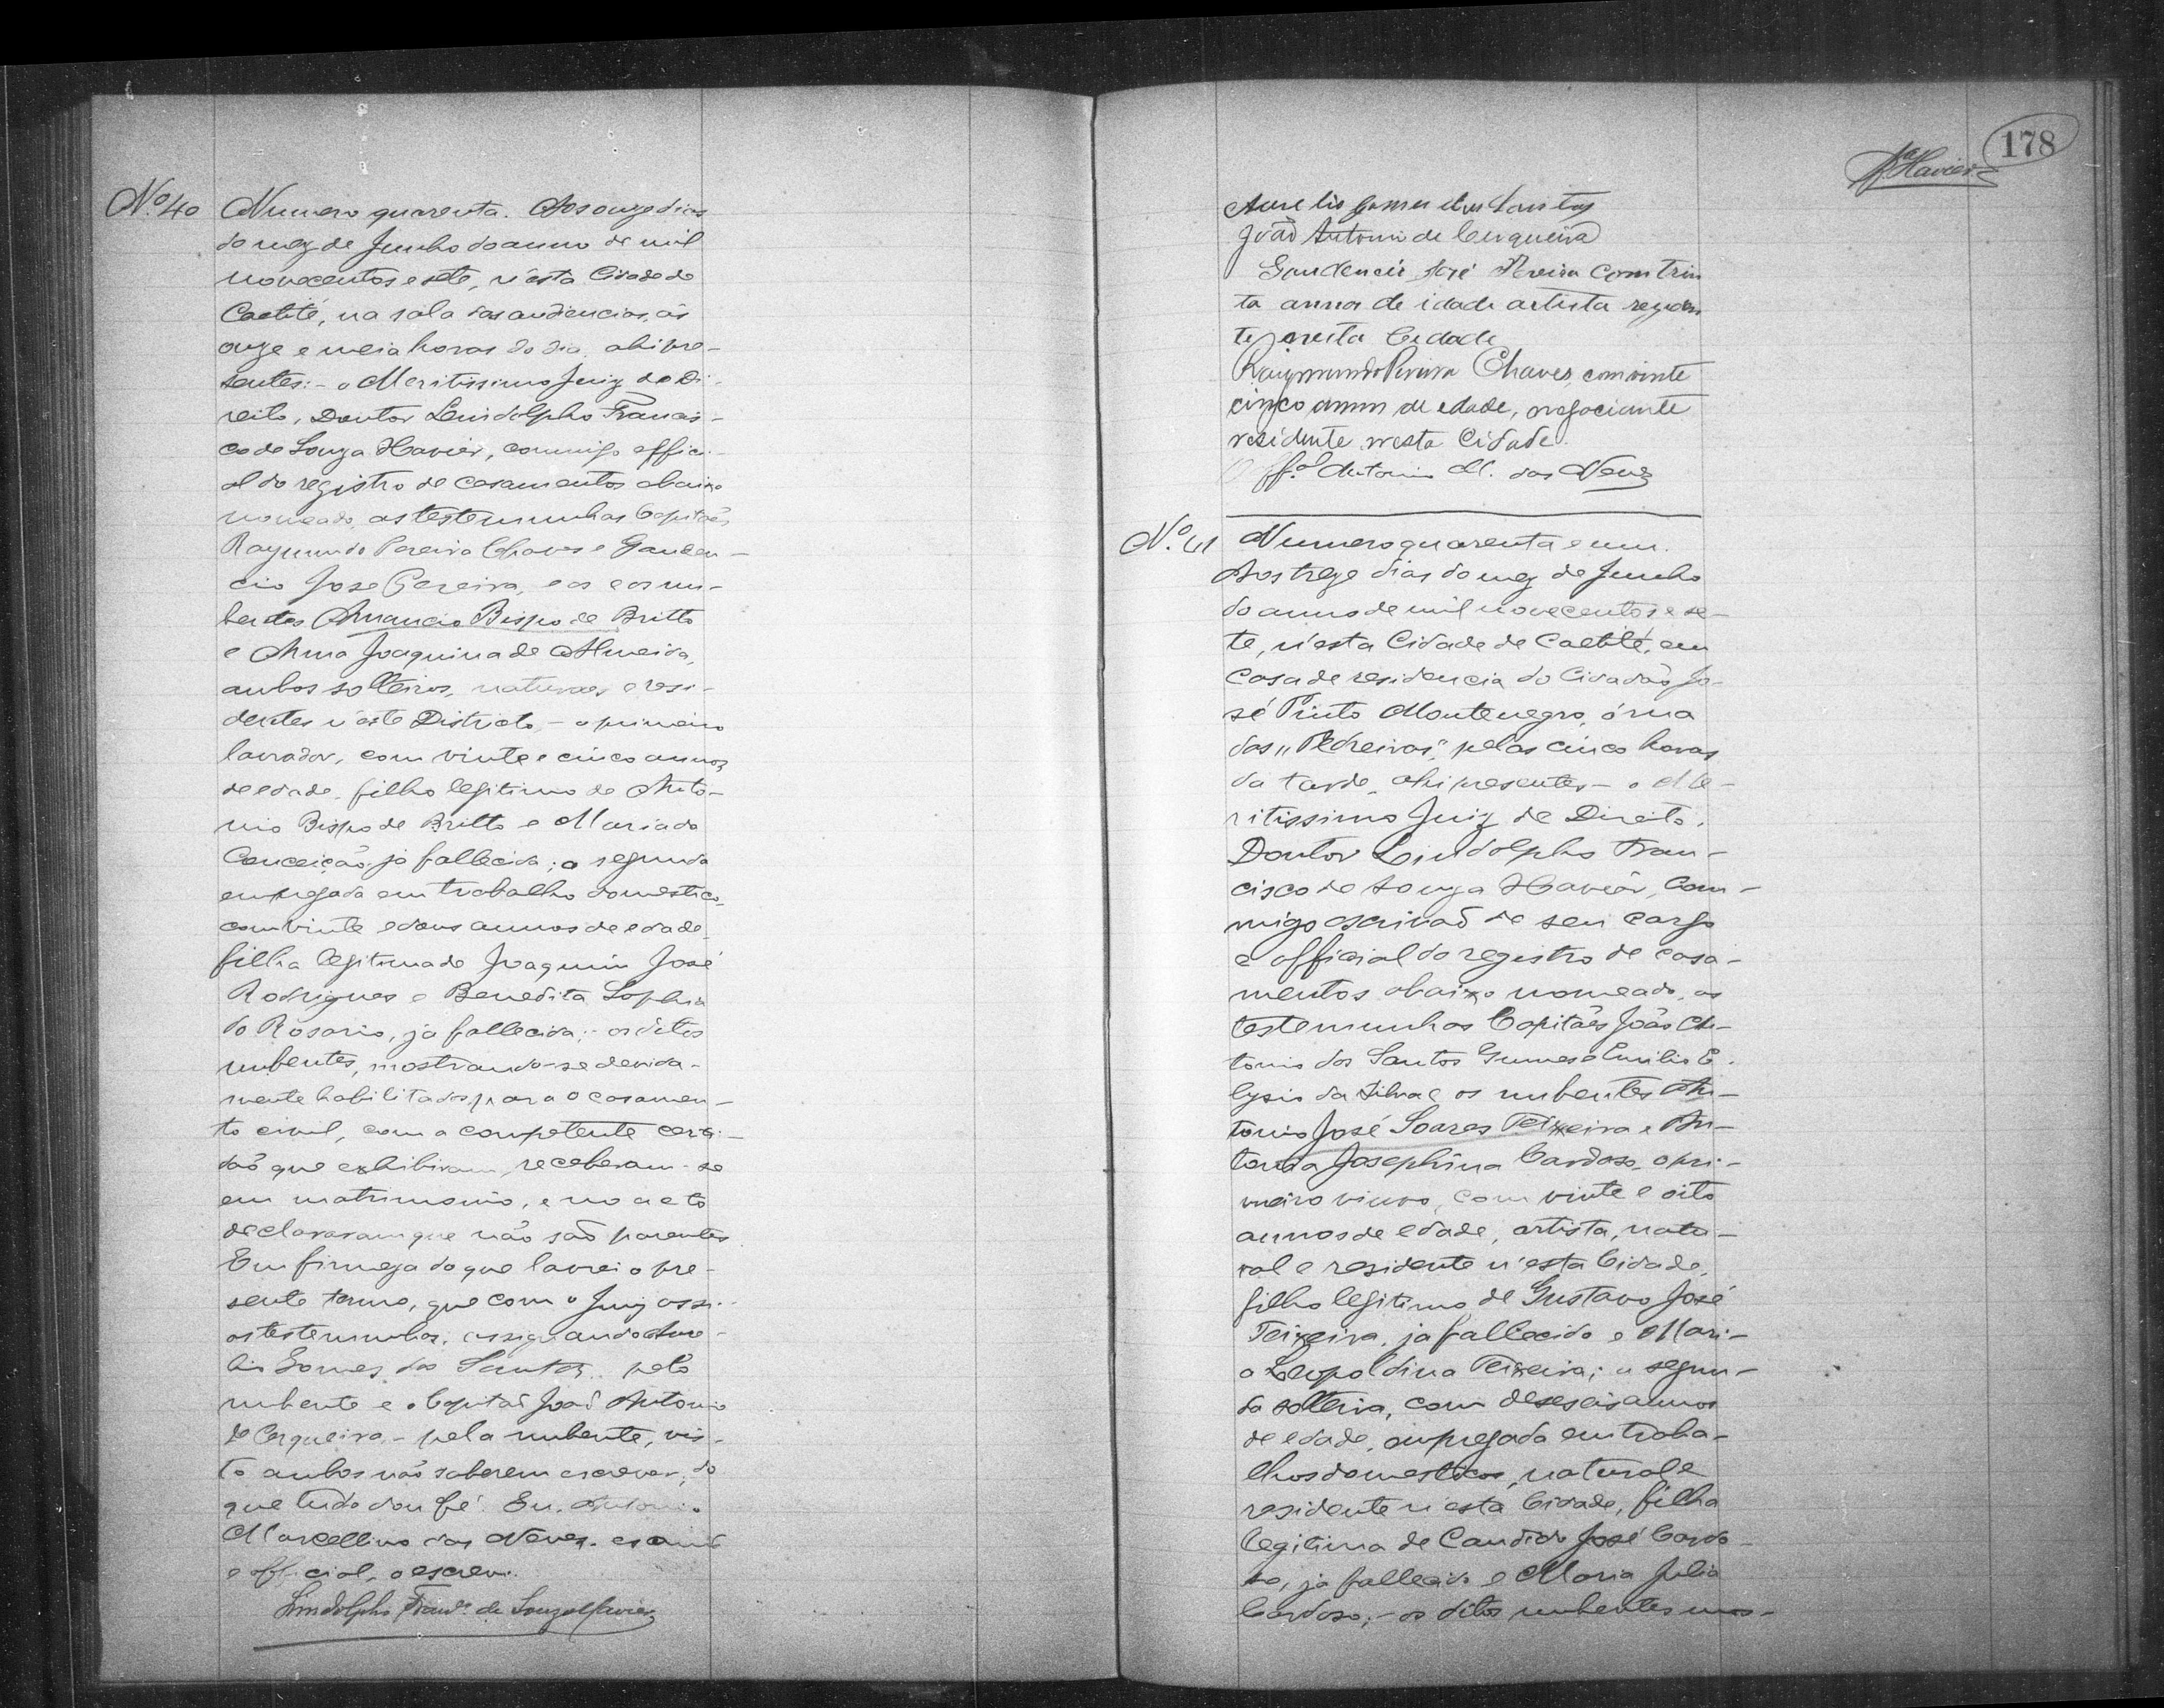 Nº 40
Numero quarenta. Aos onze dias
do mez de Junho do anno de mil
novecentos e sete, n'esta Cidade de
Caetité, na sala das audiencias, ás
onze e meia horas do dia, ahi pre-
sentes: - o Meritissimo Juiz de Di-
reito, Doutor Lindolpho Francis-
co de Souza Havier, commigo offici-
al do registro de casamentos abaixo
nomeado, as testemunhas Capitães
Raymundo Pereira Chaves e Gauden-
cio Jose Pereira, e os nu-
bentes Amancio Bispo de Britto
e Anna Joaquina de Almeida,
ambos solteiros, naturaes e resi-
dentes n'este Districto - o primeiro
lavrador, com vinte e cinco annos
de edade, filho legitimo de Anto-
nio Bispo de Britto e Maria da
Conceição, ja fallecida; a segunda
empregada em trabalho domestico,
com vinte e dous annos de edade,
filha legitima de Joaquim José
Rodrigues e Benedita Sophia
do Rosario, ja fallecida; - os ditos
nubentes, mostrando-se devida-
mente habilitados para o casamen-
to civil, com a competente certi-
dão que exhibiram, receberam-se
em matrimonio, e no acto
declararam que não são parentes.
Em firmeza do que lavrei o pre-
sente termo, que com o Juiz assi-
as testemunhas, assignando Aure-
lio Gomes dos Santos pelo
nubente e o Capitão João Antonio
de Cerqueira - pela nubente, vis-
to ambos não saberem escrever; do
que tudo dou fé. Eu, Antonio
Marcellino das Neves, escrivão
e official, o escrevi.
Lindolpho Franco. de Souza Havier
178
Havier
Aurelio Gomes dos Santos
João Antonio de Cerqueira
Gaudencio José Pereira com trin
ta annos de idade artista residen
te nesta Cidade
Raymundo Pereira Chaves, com vinte
cinco annos de edade, negociante
residente nesta Cidade.
Offal Antonio M. das Neves
Nº 41
Numero quarenta e um.
Aos treze dias do mez de Junho
do anno de mil novecentos e se-
te, n'esta Cidade de Caetité, em
casa de residencia do Cidadão Jo-
sé Pinto Montenegro, á rua
das "Pedreiras", pelas cinco horas
da tarde, ahi presentes - o Me-
ritissimo Juiz de Direito,
Doutor Lindolpho Fran-
cisco de Souza Havier, com-
migo escrivão de seu cargo
e official do registro de casa-
mentos abaixo nomeado, as
testemunhas Capitães João An-
tonio dos Santos Gumes e Emilio E-
lysio da Silva e os nubentes An-
tonio José Soares Teixeira e An-
tonia Josephina Cardoso, o pri-
meiro viuvo, com vinte e oito
annos de edade, artista, natu-
ral e residente n'esta Cidade,
filho legitimo de Gustavo José
Teixeira, ja fallecido e Mari-
a Leopoldina Teixeira; a segun-
da solteira, com deseseis annos
de edade, empregada em traba-
lhos domesticos, natural e
residente n'esta Cidade, filha
legitima de Candido José Cardo-
so, ja fallecido e Maria Julia
Cardoso; - os ditos nubentes mos-